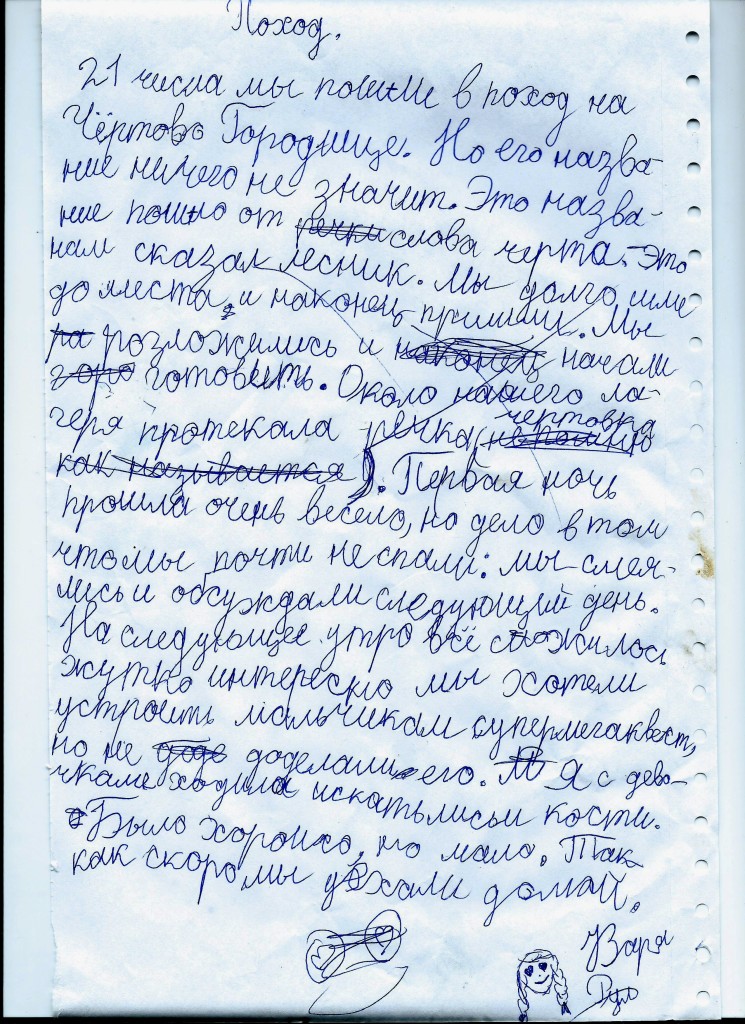 Поход.
21 числа мы пошли в поход на
Чёртово Городище. Но его назва-
ние ничего не значит. Это назва-
ние пошло от речки слова черта. Это
нам сказал лесник. Мы долго шли
до места, и наконец пришли. Мы
ра розложились и наконец начали
готовить. Около нашего ла-
геря протекала речка (чертовка
как называется). Первая ночь
прошла очень весело, но дело в том
что мы почти не спали: мы смея-
лись и обсуждали следующий день.
На следующее утро всё сложилось
жутко интересно мы хотели
устроить мальчикам супермегаквест,
но не доде доделали его. Я с дево-
чками ходила искать лисьи кости.
Было хорошо, но мало. Так
как скоро мы уехали домой.
Варя